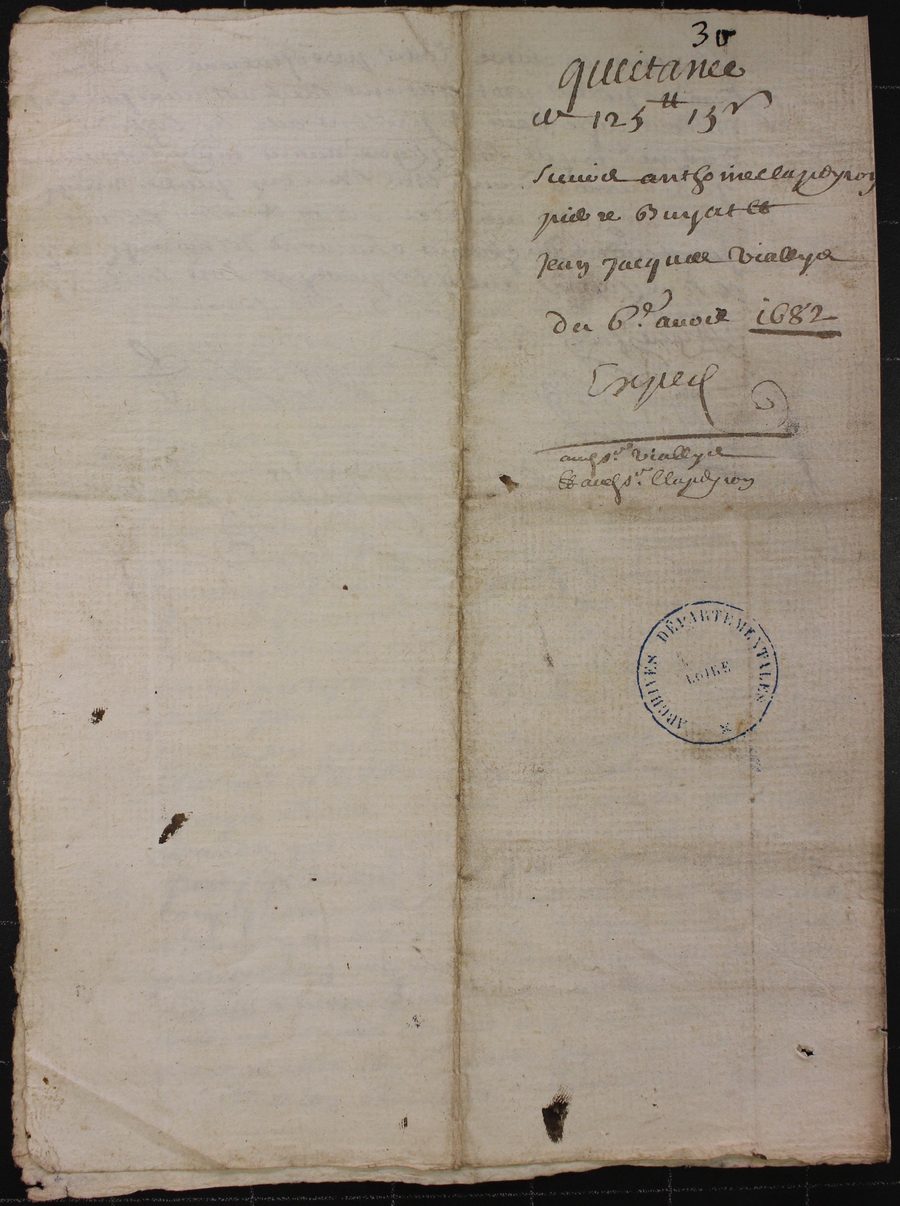 30
quictance
de 125 ₶ 15 s
Sieurs anthoine Clapeyron
pierre Buyat et
Jean Jacques Viallys
du 6e avril 1682
Exped
aud sr Viallys
Et aud sr Clapeyron
ARCHIVES DÉPARTEMENTALES
LOIRE